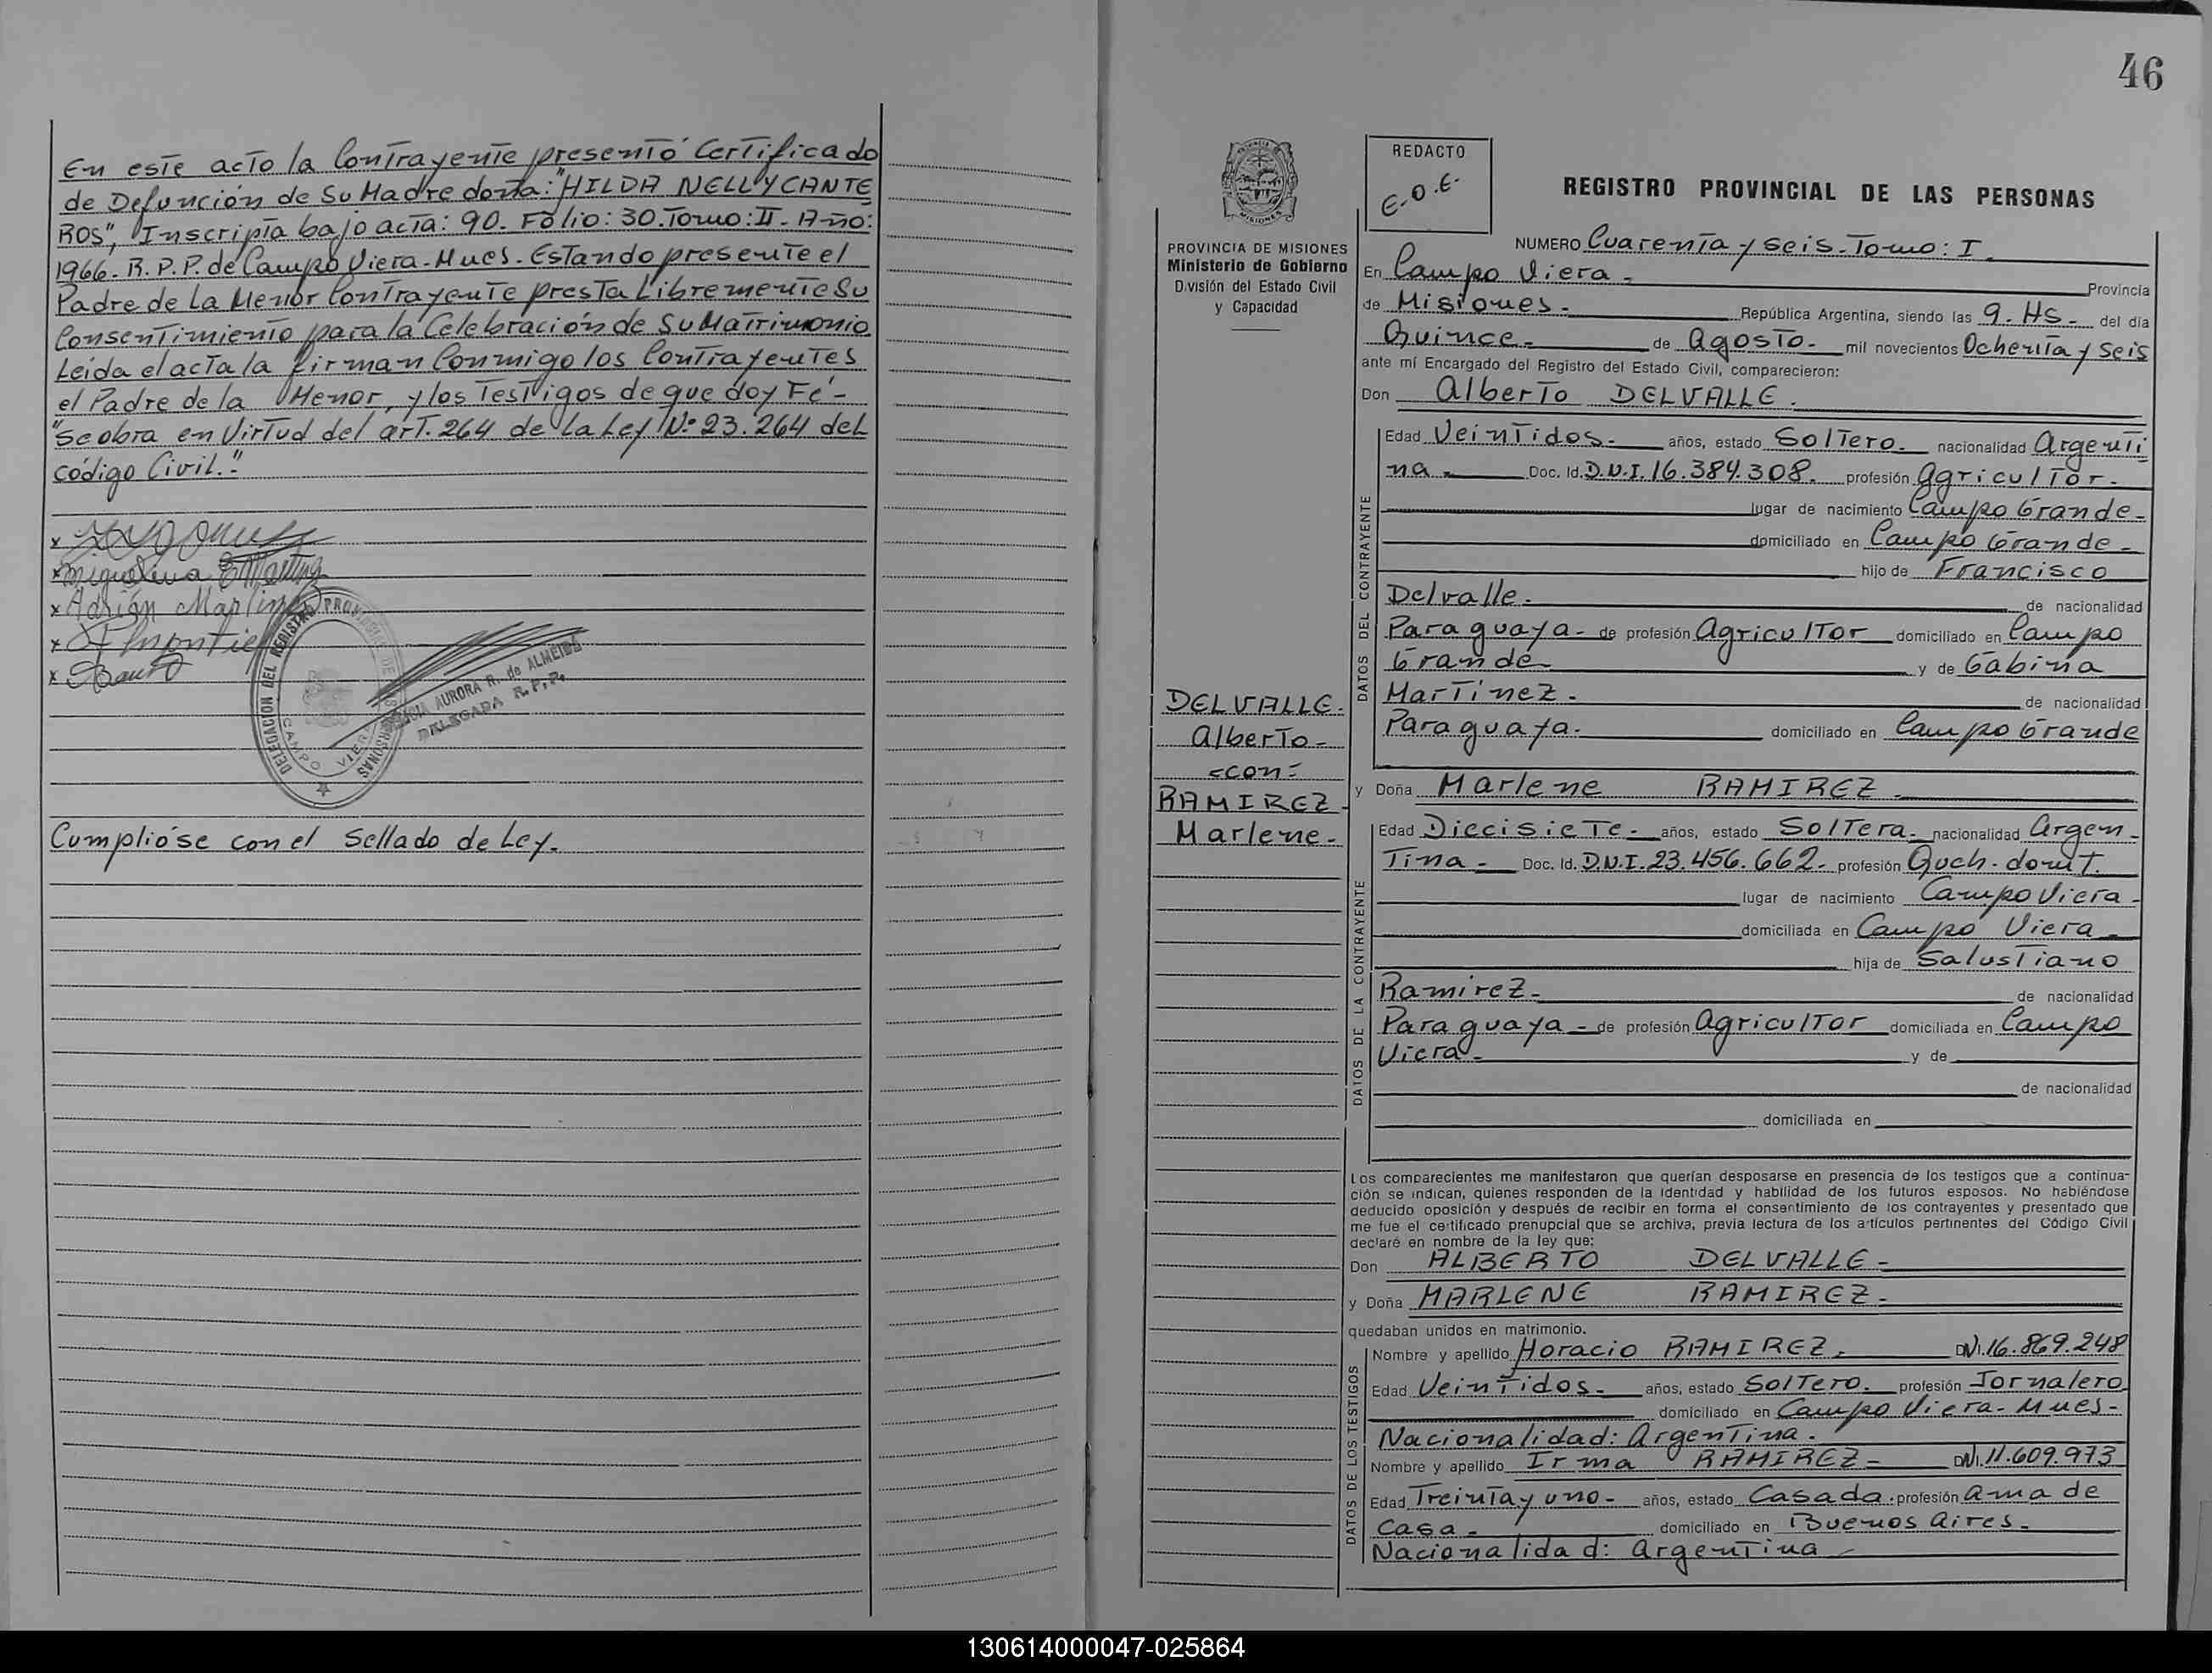 En este acto la Contrayente presentó Certificado
de Defunción de Su Madre doña: "HILDA NELLY CANTE
ROS", Inscripta bajo acta: 90. Folio: 30. Tomo: II. Año:
1966. R.P.P. de Campo Viera-Mnes. Estando presente el
Padre de La Menor Contrayente presta Libremente Su
Consentimiento para la Celebración de Su Matrimonio
Leida el acta la firman Conmigo los Contrayentes
el Padre de la Menor, y los Testigos de que doy Fé-
"Se obra en Virtud del arT. 264 de la Ley Nº 23.264 del
código Civil."
x
x
x Adrián Martinez
x
x
DELEGACION DEL REGISTRO PROVINCIAL DE LAS PERSONAS
CAMPO VIERA
AURORA R. de ALMEIDA
DELEGADA R.P.P.
Cumplióse con el Sellado de Ley.
46
PROVINCIA DE MISIONES
Ministerio de Gobierno
División del Estado Civil
y Capacidad
DELVALLE.
Alberto-
=con=
RAMIREZ-
Marlene-
REDACTO
E.O.E.
REGISTRO PROVINCIAL DE LAS PERSONAS
NUMERO Cuarenta y Seis-Tomo: I.
En Campo Viera- Provincia
de Misiones- República Argentina, siendo las 9. Hs- del día
Quince- de Agosto- mil novecientos Ochenta y Seis
ante mí Encargado del Registro del Estado Civil, comparecieron:
Don Alberto DELVALLE.
DATOS DEL CONTRAYENTE
Edad Veintidos- años, estado Soltero- nacionalidad Argenti
na- Doc. Id. D.N.I. 16.384.308. profesión Agricultor-
lugar de nacimiento Campo Grande-
domiciliado en Campo Grande-
hijo de Francisco
Delvalle- de nacionalidad
Paraguaya- de profesión Agricultor domiciliado en Campo
Grande y de Gabina
Martinez- de nacionalidad
Paraguaya- domiciliado en Campo Grande
y Doña Marlene RAMIREZ-
DATOS DE LA CONTRAYENTE
Edad Diecisiete- años, estado Soltera- nacionalidad Argen-
Tina- Doc. Id. D.N.I. 23.456.662- profesión Queh-domt.
lugar de nacimiento Campo Viera-
domiciliada en Campo Viera-
hija de Salustiano
Ramirez- de nacionalidad
Paraguaya- de profesión Agricultor domiciliada en Campo
Viera- y de
de nacionalidad
domiciliada en
Los comparecientes me manifestaron que querían desposarse en presencia de los testigos que a continua-
ción se indican, quienes responden de la identidad y habilidad de los futuros esposos. No habiéndose
deducido oposición y después de recibir en forma el consentimiento de los contrayentes y presentado que
me fue el certificado prenupcial que se archiva, previa lectura de los artículos pertinentes del Código Civil
declaré en nombre de la ley que:
Don ALBERTO DELVALLE-
y Doña MARLENE RAMIREZ-
quedaban unidos en matrimonio.
DATOS DE LOS TESTIGOS
Nombre y apellido Horacio RAMIREZ- DNI. 16.869.248
Edad Veintidos- años, estado Soltero- profesión Jornalero
domiciliado en Campo Viera-Mnes-
Nacionalidad: Argentina.
Nombre y apellido Irma RAMIREZ- DNI. 11.609.973
Edad Treinta y uno- años, estado Casada. profesión ama de
casa- domiciliado en Buenos Aires-
Nacionalidad: Argentina
130614000047-025864